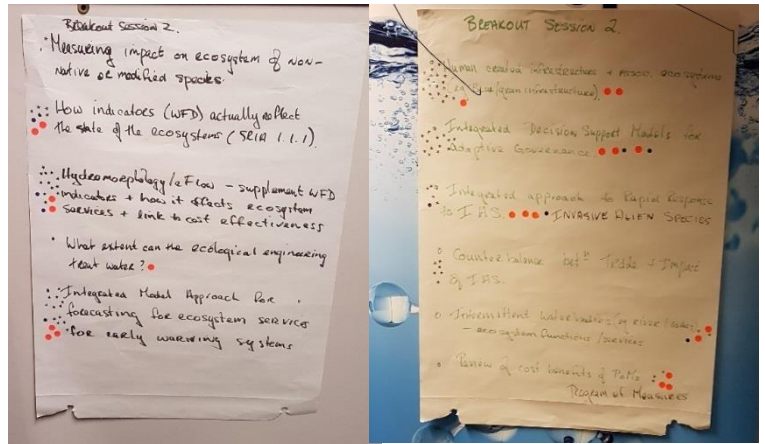 Breakout Session 2.
Measuring impact on ecosystem of non-
native or modified species.
How indicators (WFD) actually reflect
the state of the ecosystems (SRIA 1.1.1).
Hydromorphology/eFlow – supplement WFD
indicators + how it effects ecosystem
services + link to cost effectiveness
What extent can the ecological engineering
treat water?
Integrated Model Approach for
forecasting for ecosystem services
for early warning systems
BREAKOUT SESSION 2.
Human created infrastructure + assoc. ecosystems
(eg Blue/green infrastructure).
Integrated Decision Support Models for
Adaptive Governance
Integrated approach to Rapid Response
to I AS. INVASIVE ALIEN SPECIES
Counter balance betⁿ Trade + Impact
of IAS.
Intermittent water bodies/eg river
– ecosystem functions/services
Review of cost benefits of PoMs
Program of Measures